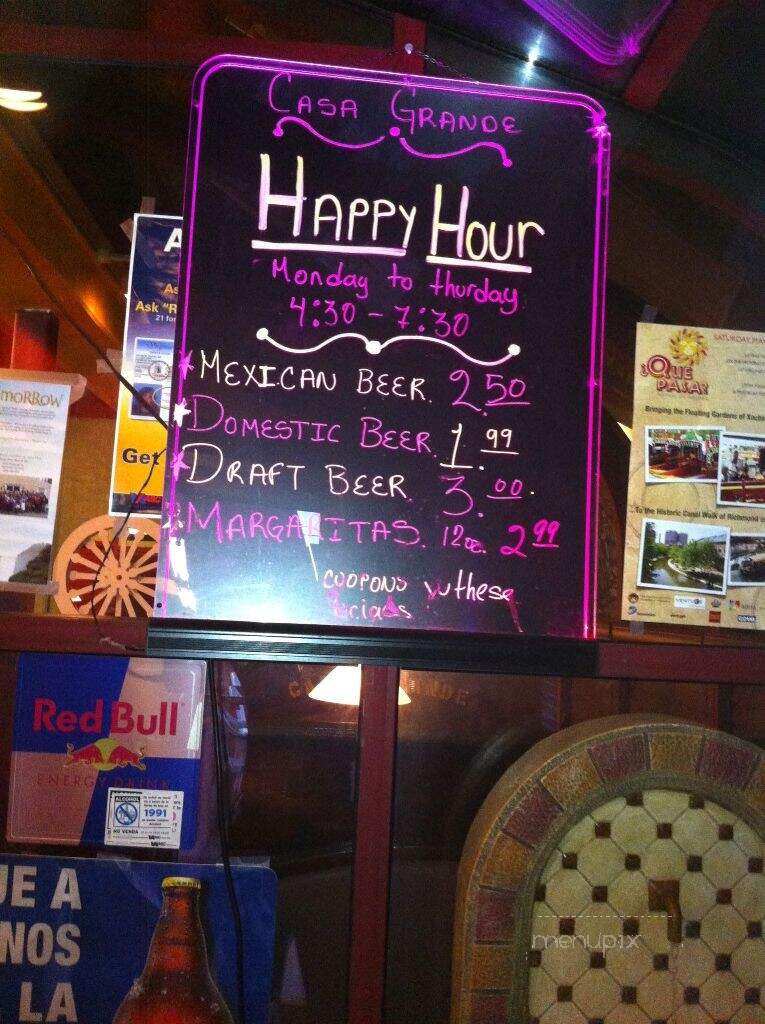 CASA GRANDE
HAPPY HOUR
Monday to thurday
4:30 - 7:30
MEXICAN BEER. 2.50
DOMESTIC BEER. 1.99
DRAFT BEER. 3.00.
MARGARITAS. 12oz. 2.99
COUPONS
these
Ask "R
21 for
Get
moRROW
SATURDAY, MAY
¿QUE
PASA?
Bringing the Floating Gardens of Xochi
To the Historic Canal Walk of Richmond
Red Bull
ENERGY DRINK
ALCOHOL
1991
NO VENDA
UE A
NOS
LA
menupix